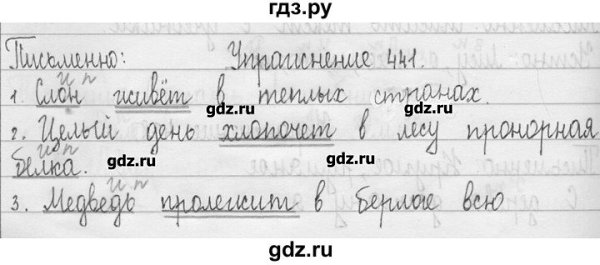 гдз.ру
Письменно: Упражнение 441.
и п
1. Слон живёт в теплых странах.
gdz.ru gdz.ru
2. Целый день хлопочет в лесу проворная
и п gdz.ru gdz.ru
белка.
и п
3. Медведь пролежит в берлоге всю
gdz.ru gdz.ru
gdz.ru